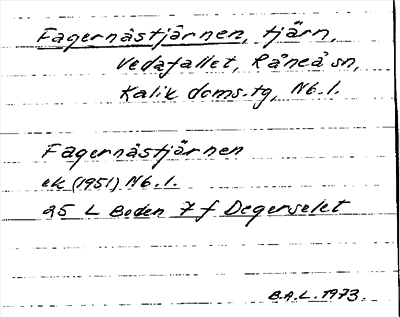 Fagernästjärnen, tjärn,
Vedafallet, Råneå sn,
Kalix doms.tg, Nb.l.
Fagernästjärnen
ek (1951) Nb.l.
25 L Boden 7 f Degerselet
B.A.L. 1973.